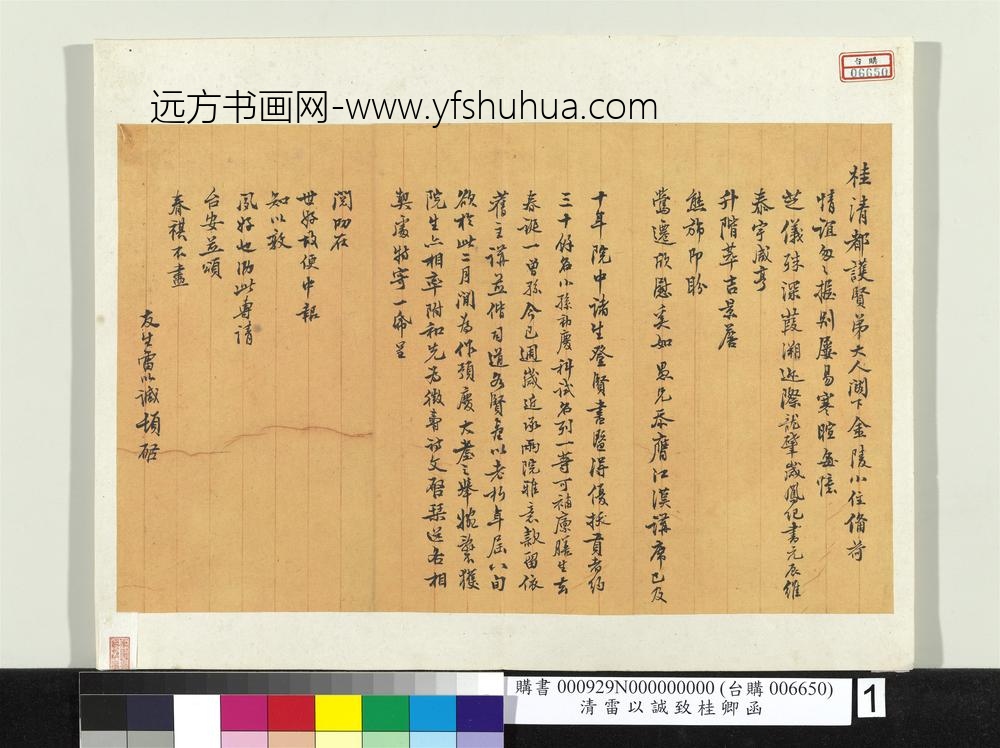 远方书画网-www.yfshuhua.com
台購
006650
桂清都護賢弟大人閣下金陵小住備荷
情誼匆匆握別屢易寒暄每憶
芝儀殊深葭溯近際龍肇歲鳳紀書元辰維
泰宇咸亨
升階萃吉景詹
熊旆即盼
鶯遷欣慰奚如愚兄忝膺江漢講席已及
十年院中諸生登賢書暨得優拔貢者約
三十餘名小孫 科試名列一等可補廩膳生去
春誕一曾孫今已週歲近承兩院雅意款留依
舊主講並偕司道各賢 以老朽年屆八旬
欲於此二月間為作預慶大耋之舉 獲
院生亦相率附和先為徵壽詩文啓 送右相
契處特寄一帋呈
閱叨在
世好故便中報
知以敦
夙好也泐此專請
台安並頌
春祺不盡
友生雷以諴頓啓
購書 000929N000000000 (台購 006650)
清雷以誠致桂卿函
1